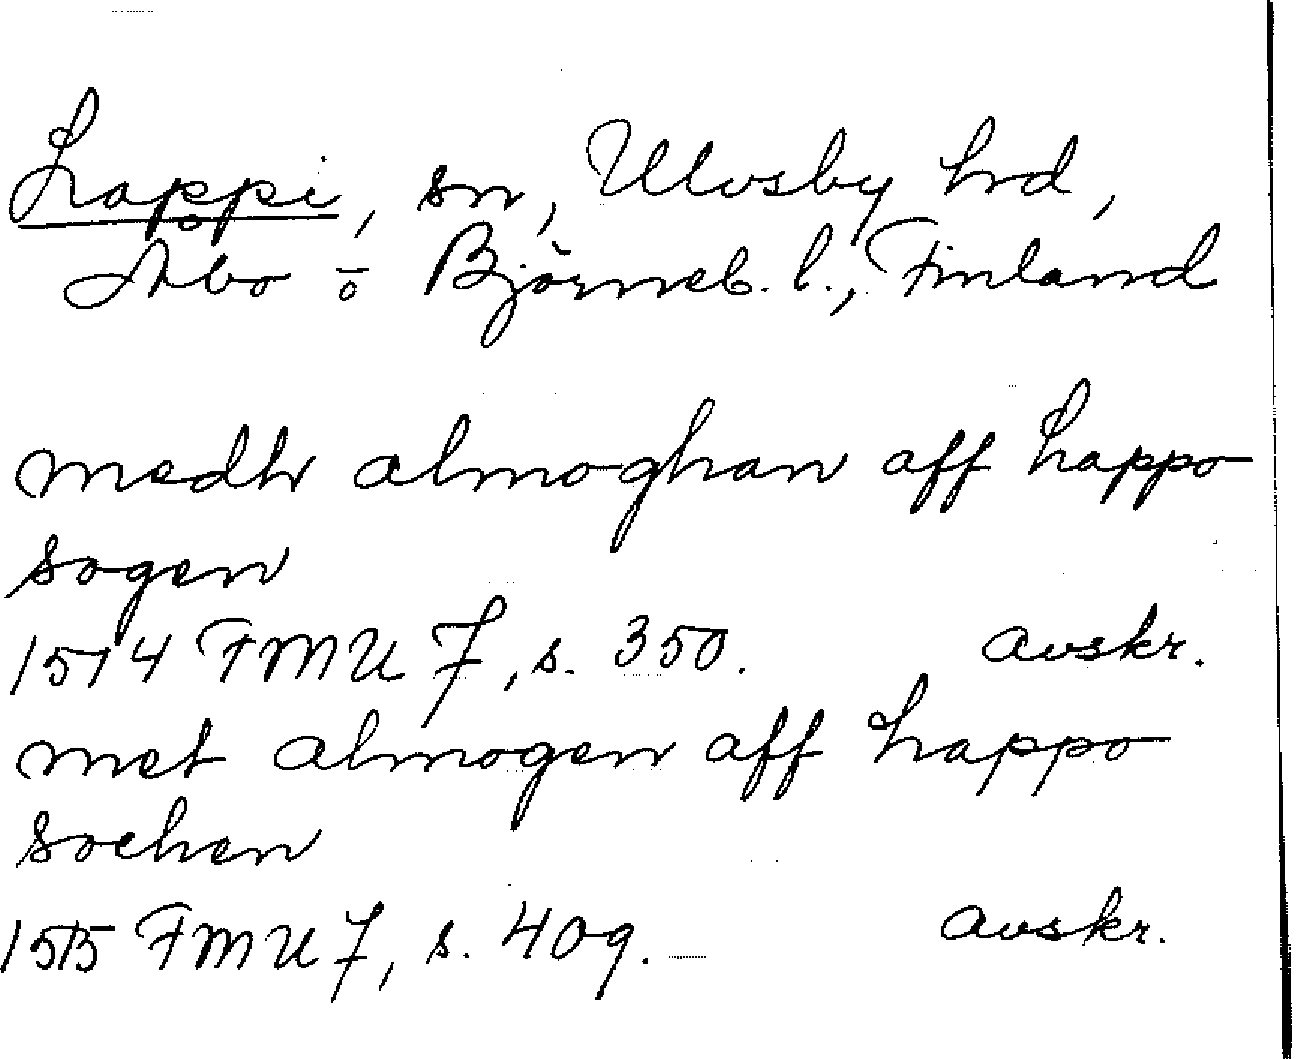 Lappi, sn, Ulvsby hrd,
Åbo o Björneb. l., Finland
medh almoghan aff Lappo
sogen
1514 FMU 7, s. 350. avskr.
met almogen aff Lappo
sochen
1515 FMU 7, s. 409. avskr.